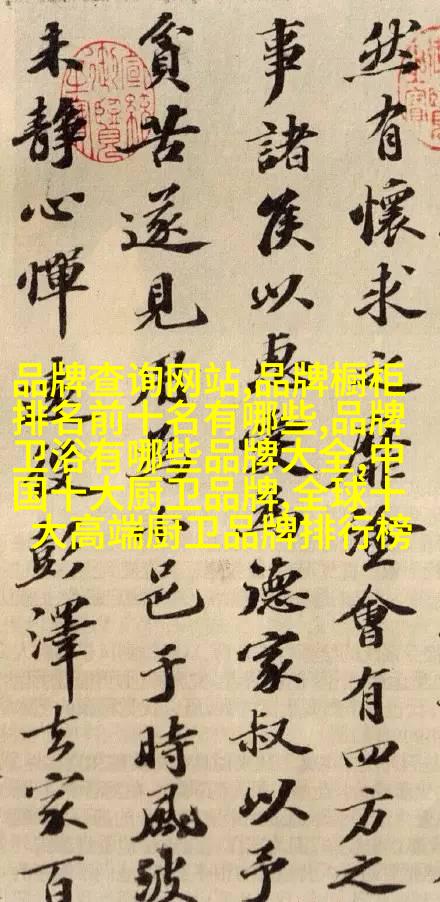 然有懷求之靡途會有四方之
事諸侯以惠愛為德家叔以予
貧苦遂見用為小邑于時風波
未靜心憚遠役彭澤去家百
品牌查询网站,品牌橱柜
排名前十名有哪些,品牌
卫浴有哪些品牌大全,中
国十大厨卫品牌,全球十
大高端厨卫品牌排行榜